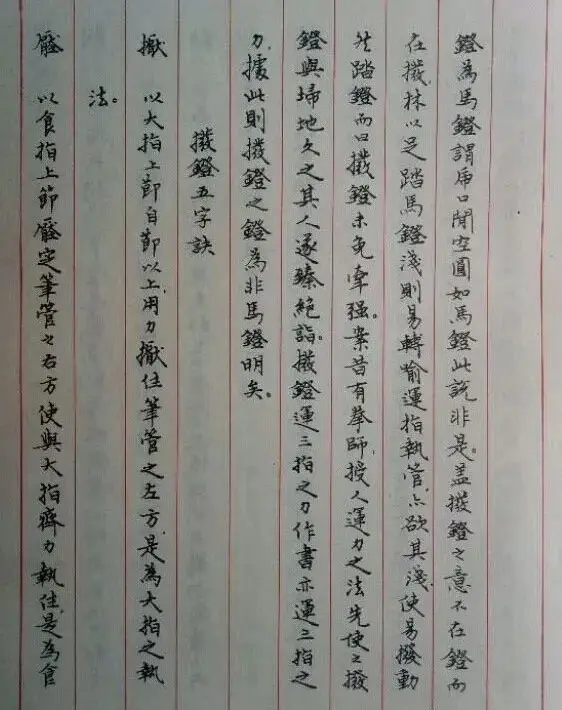 鐙為馬鐙謂虎口間空圓如馬鐙此說非是。蓋撥鐙之意不在鐙而
在撥林以足踏馬鐙淺則易轉喻運指執管亦欲其淺使易撥動
然踏鐙而曰撥鐙未免牽强。案昔有拳師授人運力之法先使之撥
鐙與埽地久之其人遂臻絕詣。撥鐙運三指之力作書亦運三指之
力據此則撥鐙之鐙為非馬鐙明矣。
撥鐙五字訣
擫 以大指上節自節以上用力擫住筆管之左方是為大指之執
法。
壓 以食指上節壓定筆管之右方使與大指齊力執住是為食